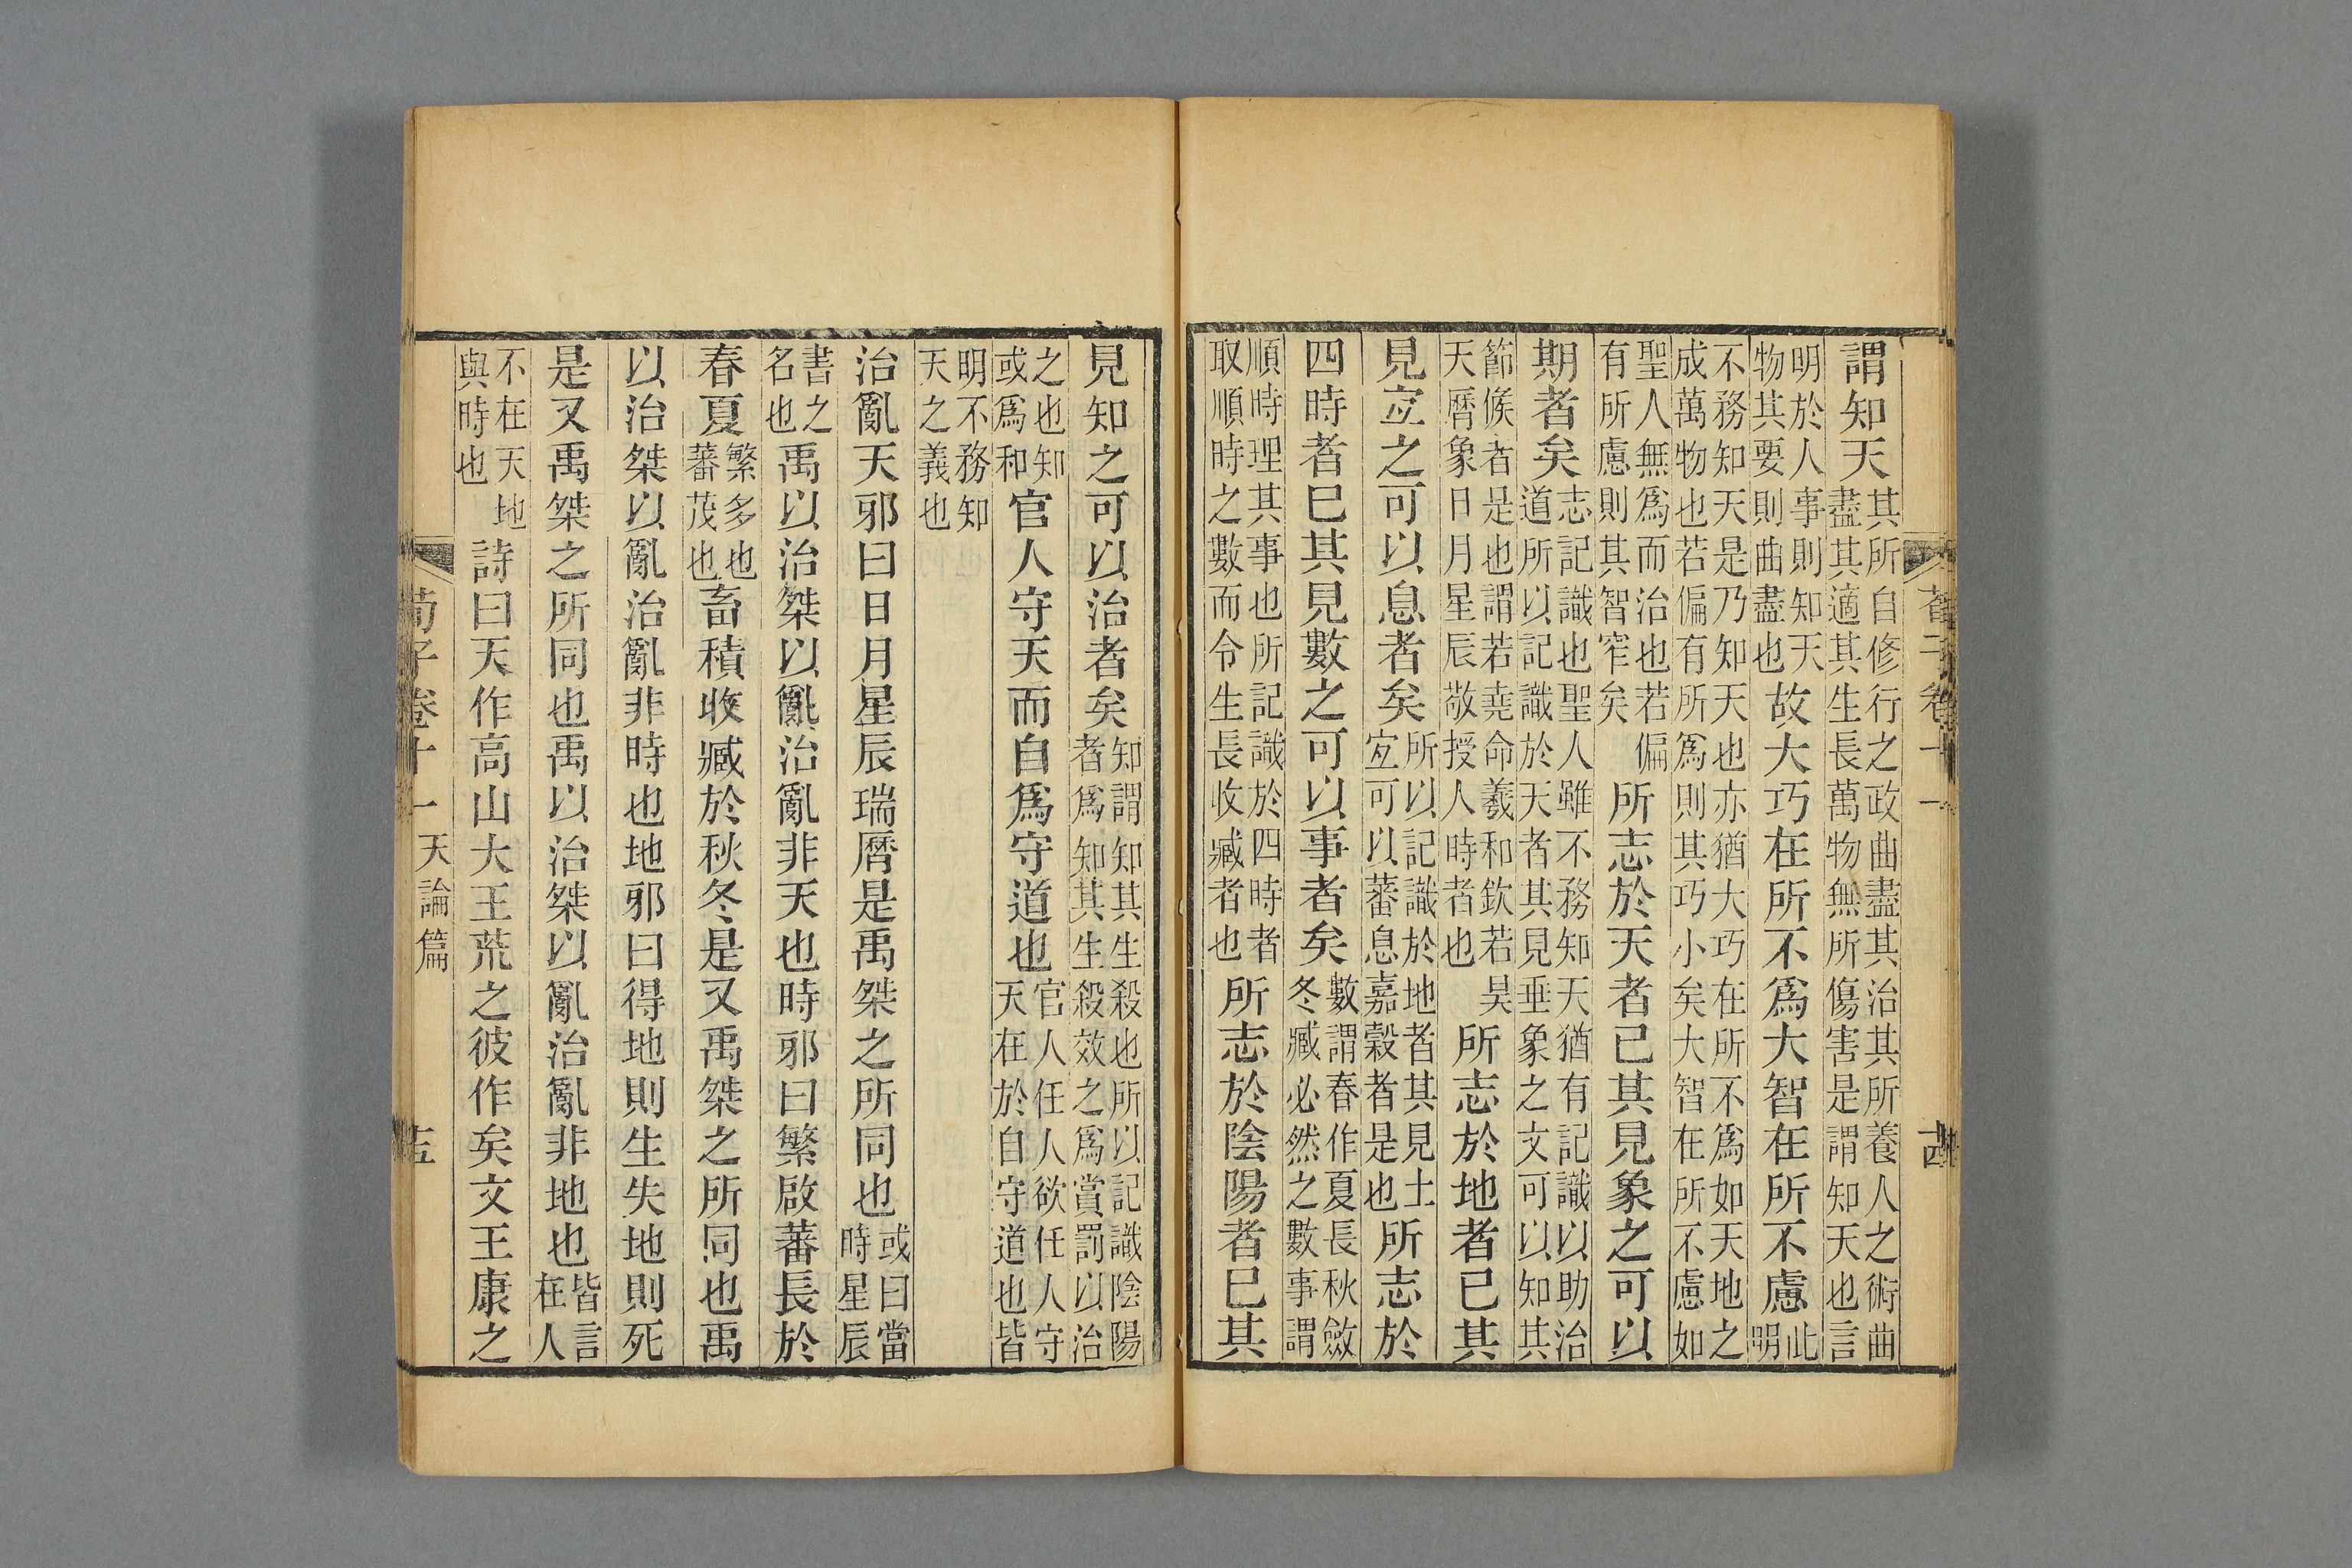 荀子卷十一 十四
謂知天其所自修行之政曲盡其治其所養人之術曲盡其適其生長萬物無所傷害是謂知天也言
明於人事則知天物其要則曲盡也故大巧在所不爲大智在所不慮此明
不務知天是乃知天也亦猶大巧在所不爲如天地之成萬物也若偏有所爲則其巧小矣大智在所不慮如
聖人無爲而治也若偏有所慮則其智窄矣所志於天者已其見象之可以
期者矣志記識也聖人雖不務知天猶有記識以助治道所以記識於天者其見垂象之文可以知其
節候者是也謂若堯命羲和欽若昊天曆象日月星辰敬授人時者也所志於地者已其
見宐之可以息者矣所以記識於地者其見土宐可以蕃息嘉穀者是也所志於
四時者已其見數之可以事者矣數謂春作夏長秋斂冬臧必然之數事謂
順時理其事也所記識於四時者取順時之數而令生長收臧者也所志於陰陽者已其
見知之可以治者矣知謂知其生殺也所以記識陰陽者爲知其生殺效之爲賞罰以治
之也知或爲和官人守天而自爲守道也官人任人欲任人守天在於自守道也皆
明不務知天之義也
治亂天邪曰日月星辰瑞曆是禹桀之所同也或曰當時星辰
書之名也禹以治桀以亂治亂非天也時邪曰繁啟蕃長於
春夏繁多也蕃茂也畜積收臧於秋冬是又禹桀之所同也禹
以治桀以亂治亂非時也地邪曰得地則生失地則死
是又禹桀之所同也禹以治桀以亂治亂非地也皆言在人
不在天地與時也詩曰天作高山大王荒之彼作矣文王康之
荀子卷十一 天論篇 十五